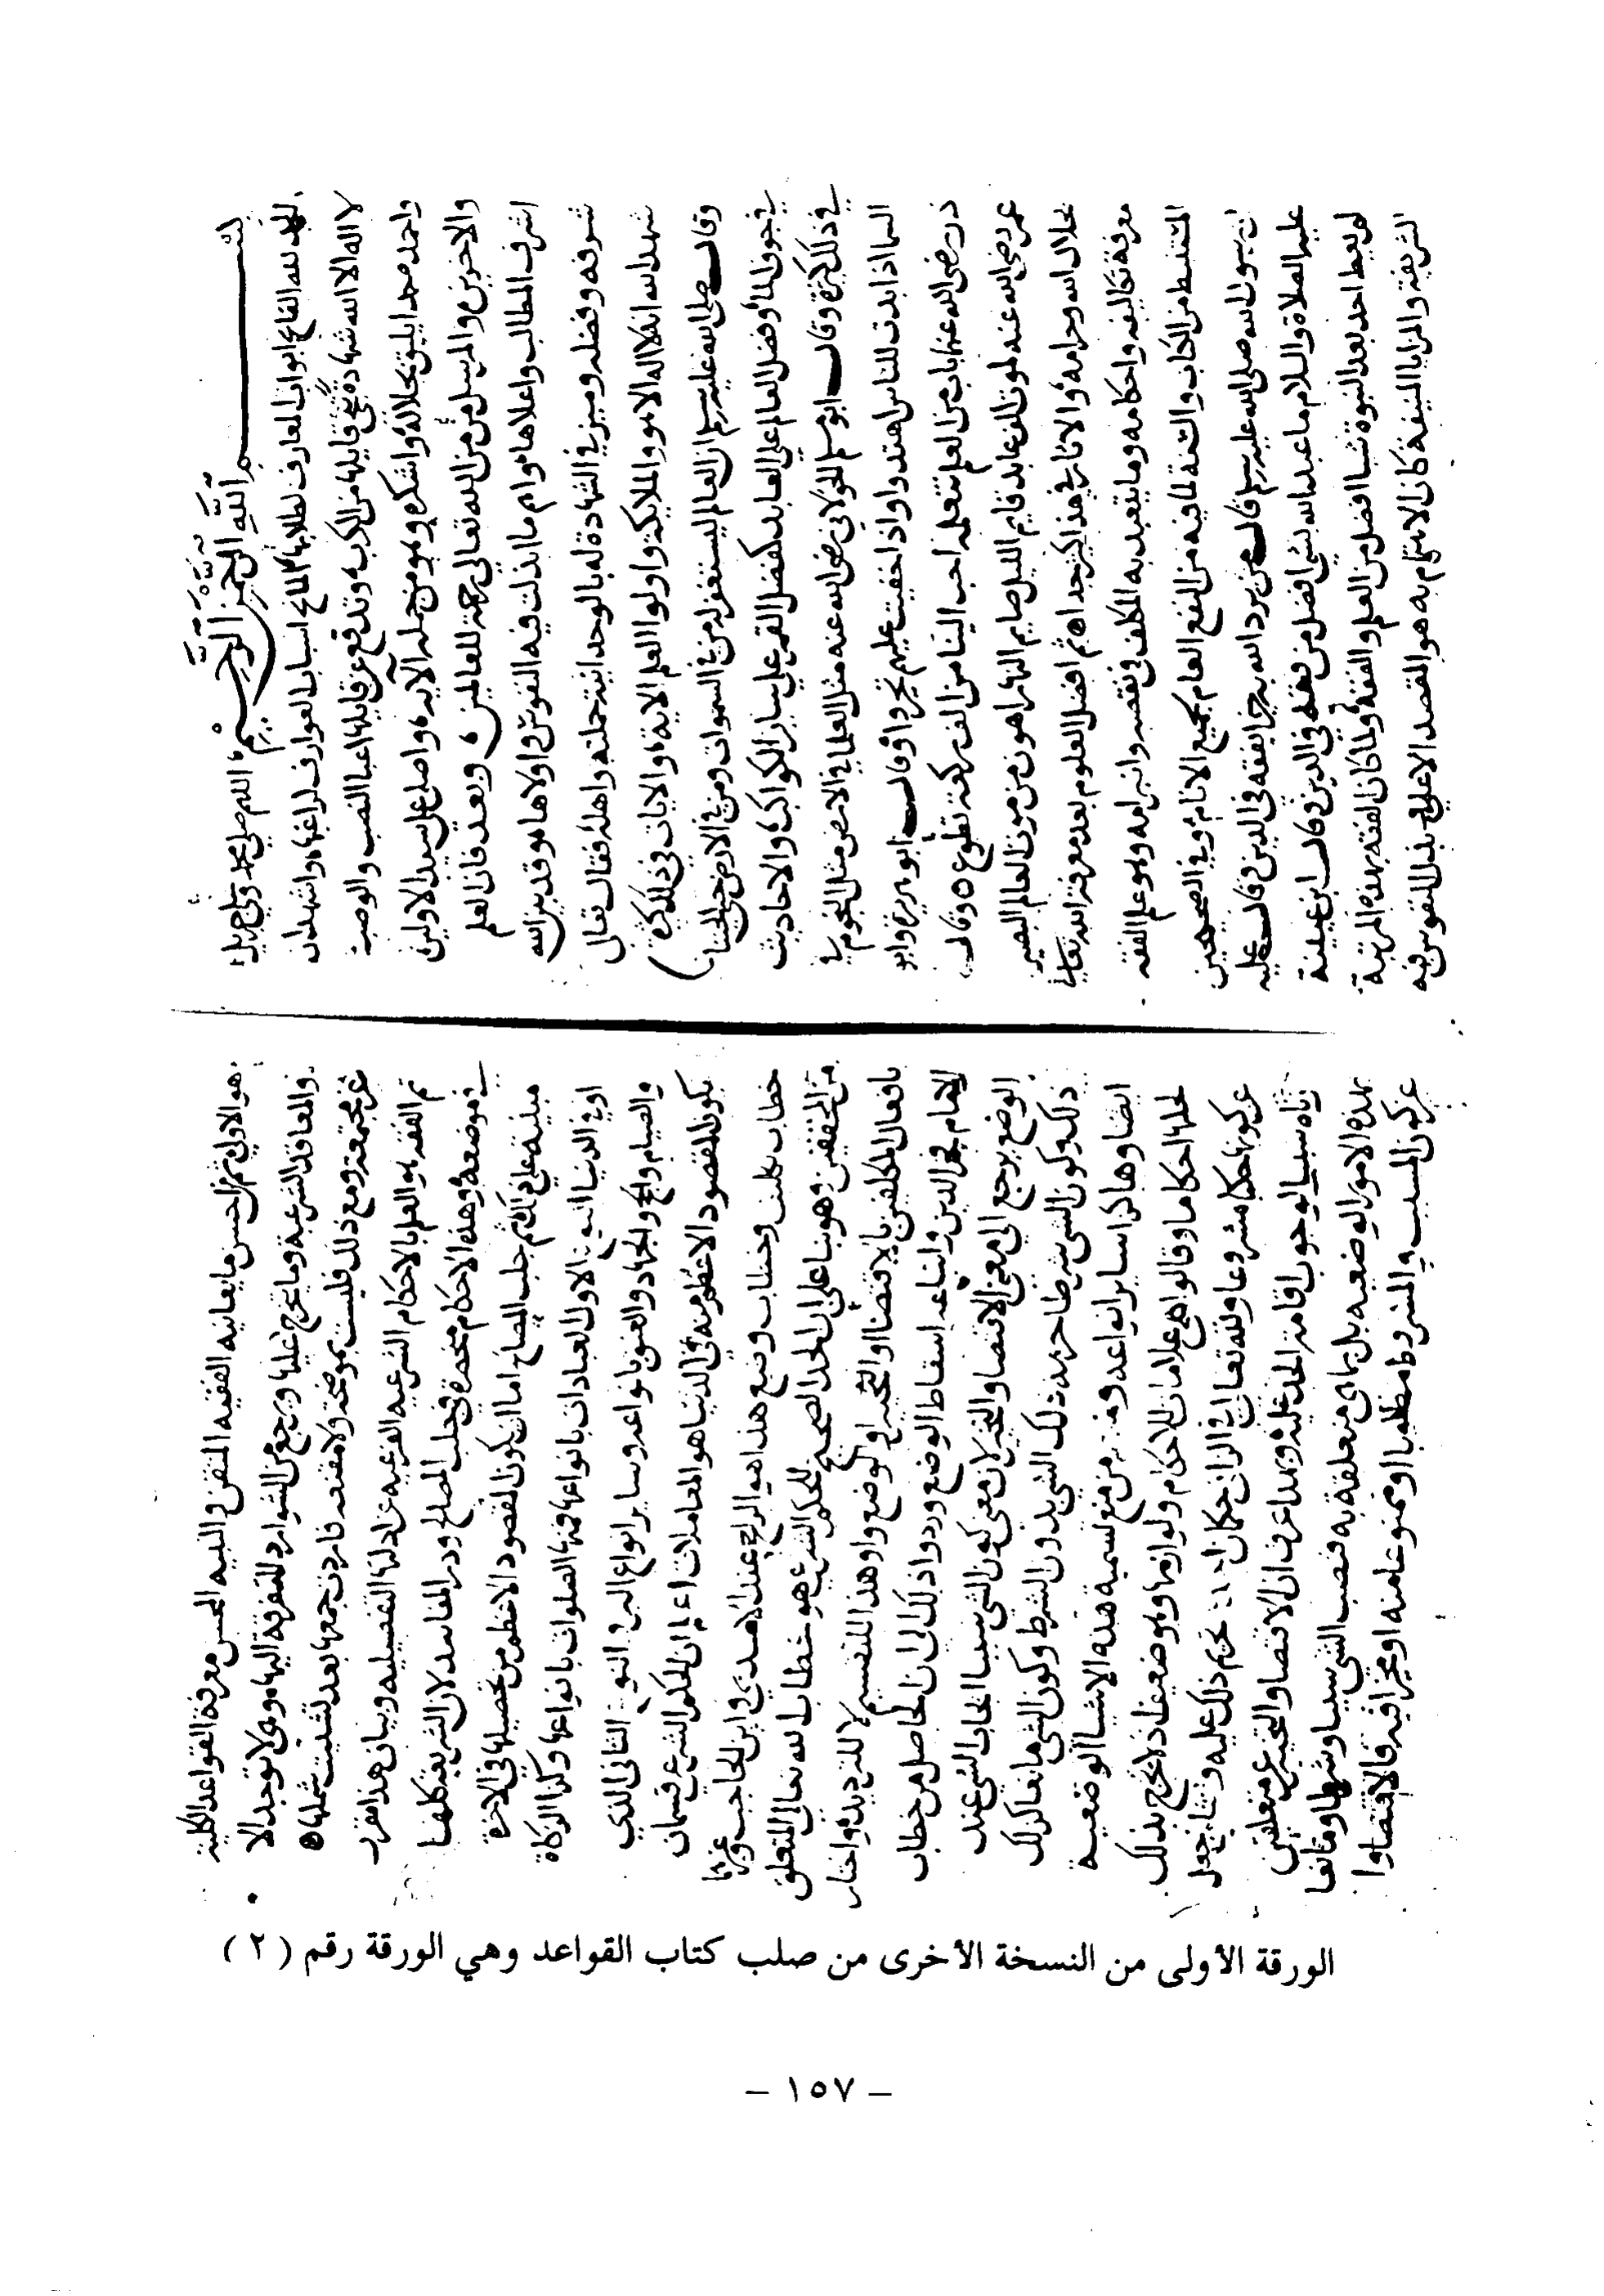 بسم الله الرحمن الرحيم اللهم صل على محمد وعلى
الحمد لله الفاتح ابواب المعارف لطلابها المانح اسباب العوارف لراغبها واشهد ان
لا اله الا الله شهادة تنجي قايلها من الكرب وتدفع عن قايلها اعبا النصب والوصب
واحمده حمدا يليق بجلاله واشكره وهو من جملة آلايه واصلي على سيد الاولين
والاخرين والمرسل من الله تعالى رحمة للعالمين وبعد فان العلم
اشرف المطالب واعلاها وام ما ابذلت فيه النفوس واولاها وقد بين الله
شرفه وفضله وميز في الشهادة له بالوحدانية حملته واهله فقال تعالى
شهد الله انه لا اله الا هو والملايكة واولوا العلم الاية والايات في ذلك كثيرة
وقال صلى الله عليه وسلم ان العالم ليستغفر له من في السموات ومن في الارض حتى الحيتان
في جوف الماء وفضل العالم على العابد كفضل القمر على ساير الكواكب والاحاديث
في ذلك كثيرة وقال ابو مسلم الخولاني رضي الله عنه مثل العلما في الارض مثل النجوم في
السما اذا بدت للناس اهتدوا واذا خفيت عليهم تحيروا وقال ابو هريرة وابو
ذر رضي الله عنهما باب من العلم نتعلمه احب الينا من الف ركعة تطوع وقال
عمر رضي الله عنه لموت الف عابد قايم الليل صايم النهار اهون من موت العالم البصير
بحلال الله وحرامه والاثار في هذا كثير جدا ثم افضل العلوم بعد معرفة الله تعالى
معرفة تكاليفه واحكامه وما يتعبد به المكلف في نقضه وابرامه وهو علم الفقه
المستنبط من الكتاب والسنة لما فيه من النفع العام لجميع الانام وفي الصحيحين
ان رسول الله صلى الله عليه وسلم قال من يرد الله به خيرا يفقهه في الدين وقال عليه
عليه الصلاة والسلام ما عبد الله بشي افضل من فقه في الدين وقال ابن عيينة
لم يعط احد بعد النبوة شيا افضل من العلم والفقه ولما كان الفقه بهذه المرتبة
الشريفة والمزايا المنيفة كان الاهتمام به هو المقصد الاعلى بذل النفوس فيه
هو الاولى ثم ان احسن ما يعانيه الفقيه المتقن والنبيه المحسن معرفة القواعد الكلية
والمعاقد الشرعية وما يتخرج عليها ويرجع من الشوارد المتفرقة اليها وهي لا توجد الا
غير مجتمعة ومع ذلك فليست بموضحة ولا مقنعة فاردت جمعها بعد تشتيت شملها
ثم الفقه هو العلم بالاحكام الشرعيه الفرعيه عن ادلتها التفصيليه وبيان هذا مقرر
في موضعه وهذه الاحكام منحصرة في جلب المصالح ودرء المفاسد لان الشريعة كلها
مبنية على ذلك ثم جلب المصالح اما ان يكون المقصود الاعظم من تحصيلها في الاخرة
او في الدنيا النوع الاول العبادات بانواعها فمنها الصلوات بانواعها وكذا الزكاة
والصيام والحج والجهاد والعتق بانواعه وساير انواع البر النوع الثاني الذي
يكون المقصود الاعظم منه في الدنيا هو المعاملات اعلم ان الحكم الشرعي قسمان
خطاب تكليف وخطاب وضع هذا هو الراجح عند الامدي وابن الحاجب وغيرهما
من المحققين وهو بنا على ان الحد الصحيح للحكم الشرعي هو خطاب الله تعالى المتعلق
بافعال المكلفين بالاقتضا او التخيير او الوضع واو هذا للتقسيم لا للترديد واختار
الامام فخر الدين واتباعه اسقاط الوضع وردوا ذلك الى ان الحاصل من خطاب
الوضع يرجع الى معنى الاقتضا والتخيير لان معنى كون الشي سببا ايجاب الشي عند
ذلك وكون الشي شرطا حرمة ذلك الشي بدون الشرط وكون الشي مانعا كذلك
ايضا وهاكذا ساير انواعه ومنهم من منع تسمية هذه الاشيا الوضعية
كلها احكاما وقالوا هي علامات للاحكام ولوازمها وهو ضعيف اذ لا تخرج بذلك
عن كونها احكاما مشروعا ولله تعالى في الزاني حكمان تحريم ذلك عليه وثانيهما جعل
زناه سببا لوجوب اقامة الحد عليه وبهذا عرف ان الاقتضا والتخيير غير متعلقين
بهذه الامور الوضعيه بل بما هي متعلقة به فنصب الشي سببا وشرطا ومانعا
غير كون المسبب والمشروط مطلوبا او ممنوعا منه او مخيرا فيه فالاقتضا وا
الورقة الأولى من النسخة الأخرى من صلب كتاب القواعد وهي الورقة رقم ( ٢ )
– ١٥٧ –